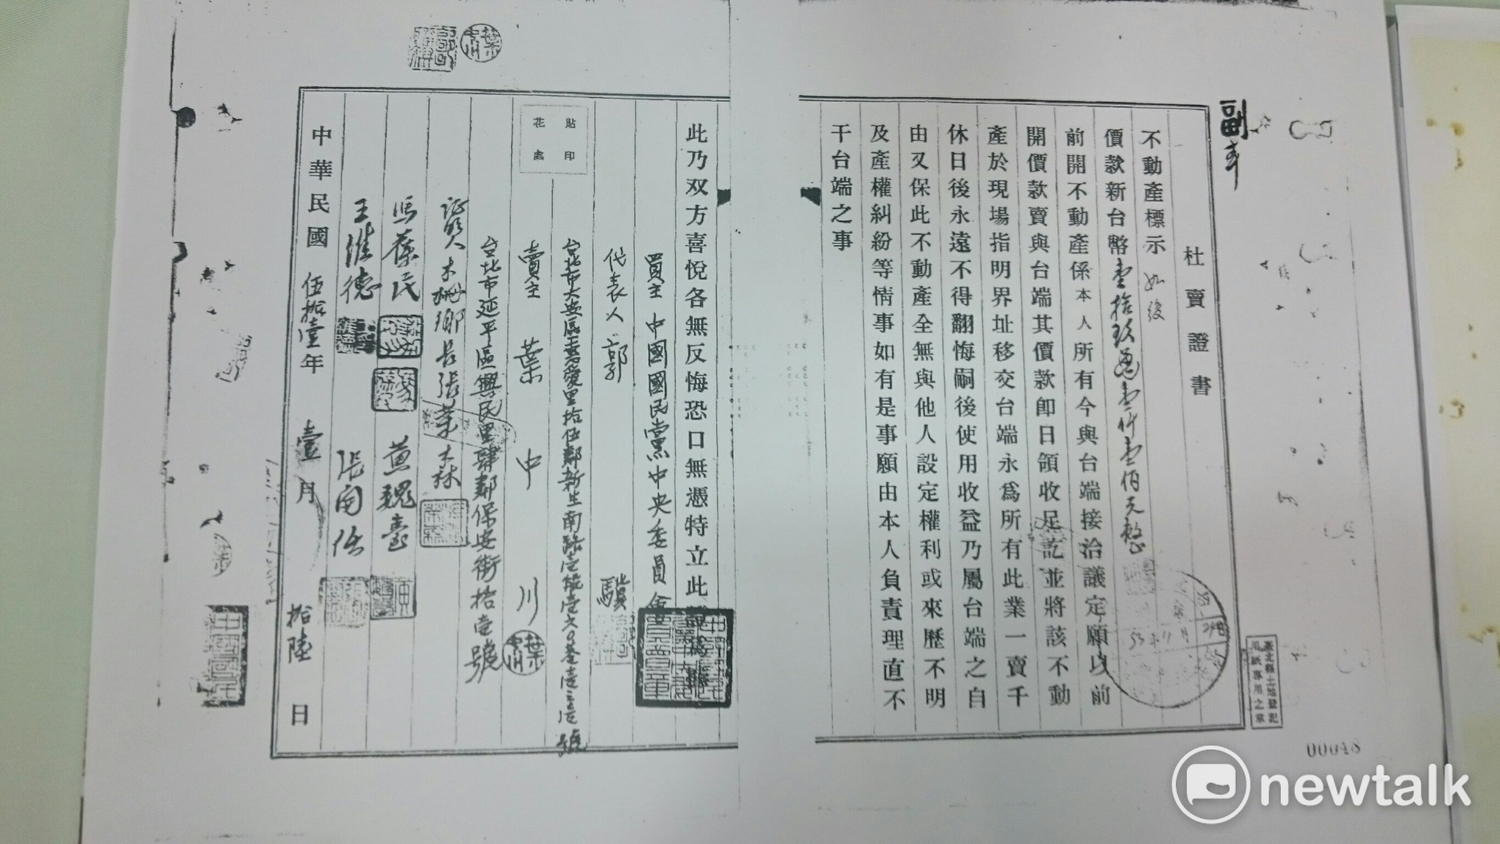 副本
杜賣證書
不動產標示 如後
價款新台幣壹拾玖萬壹仟壹佰元整
前開不動產係本人所有今與台端接洽議定願以前
開價款賣與台端其價款即日領收足訖並將該不動
產於現場指明界址移交台端永為所有此業一賣千
休日後永遠不得翻悔嗣後使用收益乃屬台端之自
由又保此不動產全無與他人設定權利或來歷不明
及產權糾紛等情事如有是事願由本人負責理直不
干台端之事
此乃双方喜悅各無反悔恐口無憑特立此
買主 中國國民黨中央委員會
代表人 郭 驥
台北市大安區 里拾伍鄰新生南路
貼印
花處
賣主 葉中川
台北市延平區興民里肆鄰保安街拾壹號
証人 木柵鄉長張 森
馮葆民 黃魏臺
王維德 張
中華民國 伍拾壹年 壹月 拾陸日
臺北縣土地登記
用紙專用之章
00048
newtalk